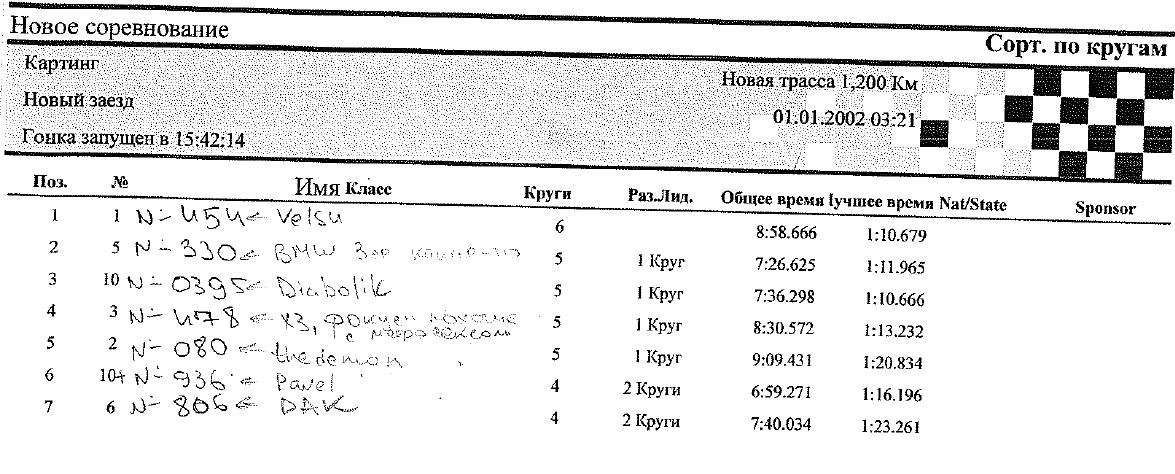 Новое соревнование
Сорт. по кругам
Картинг
Новая трасса 1,200 Км
Новый заезд
01.01.2002 03:21
Гонка запущен в 15:42:14
Поз. № Имя Класс Круги Раз.Лид. Общее время (учшее время Nat/State Sponsor
1 1 N- 454 ← Velsu 6 8:58.666 1:10.679
2 5 N- 330 ← BMW 5 1 Круг 7:26.625 1:11.965
3 10 N- 0395 ← Diabolik 5 1 Круг 7:36.298 1:10.666
4 3 N- 478 ← ХЗ, 5 1 Круг 8:30.572 1:13.232
с
5 2 N- 080 ← thedemon 5 1 Круг 9:09.431 1:20.834
6 10+ N- 936 ← Pavel 4 2 Круги 6:59.271 1:16.196
7 6 N- 806 ← DAK 4 2 Круги 7:40.034 1:23.261